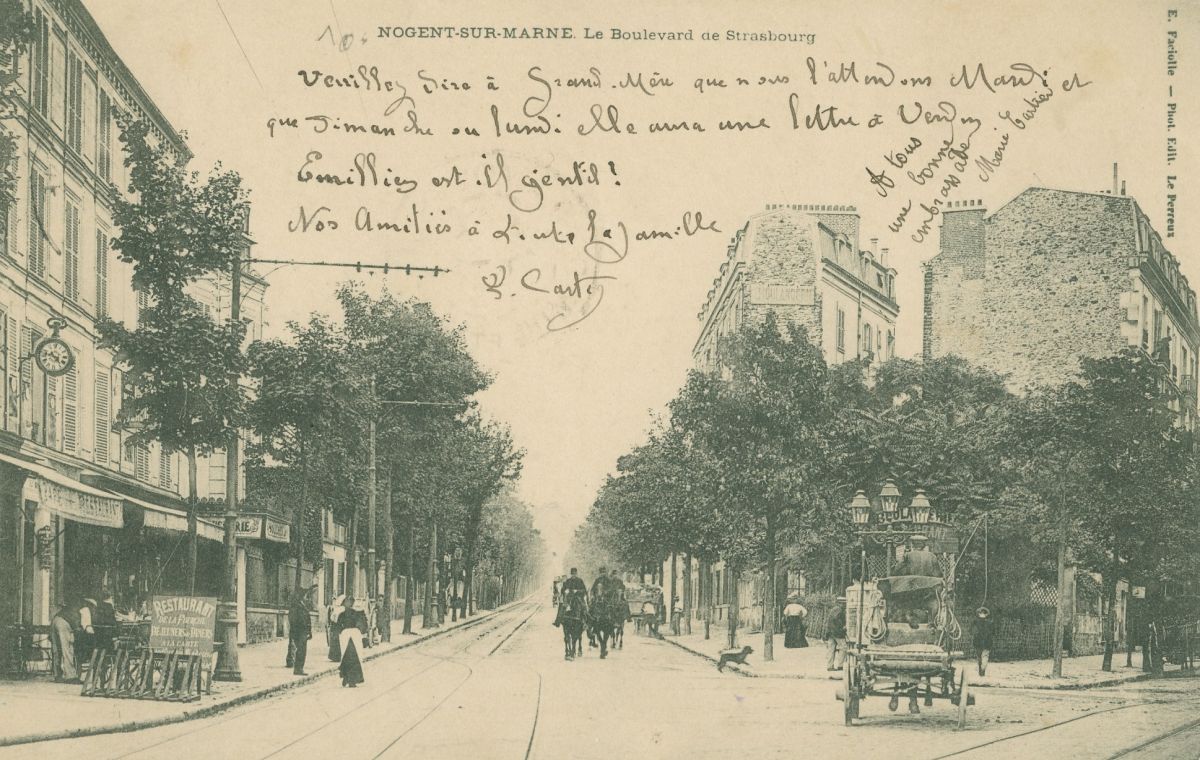 10.
NOGENT-SUR-MARNE. Le Boulevard de Strasbourg
E. Faciolle — Phot. Edit. Le Perreux
Veuillez dire à Grand-Mère que nous l'attendons Mardi et
que Dimanche ou lundi elle aura une lettre à
est-il gentil!
Nos Amitiés à toute la famille
A tous
une bonne
embrassade
Marie
RESTAURANT
RESTAURANT
DE LA FOURCHE
DEJEUNERS & DINERS
A LA CARTE